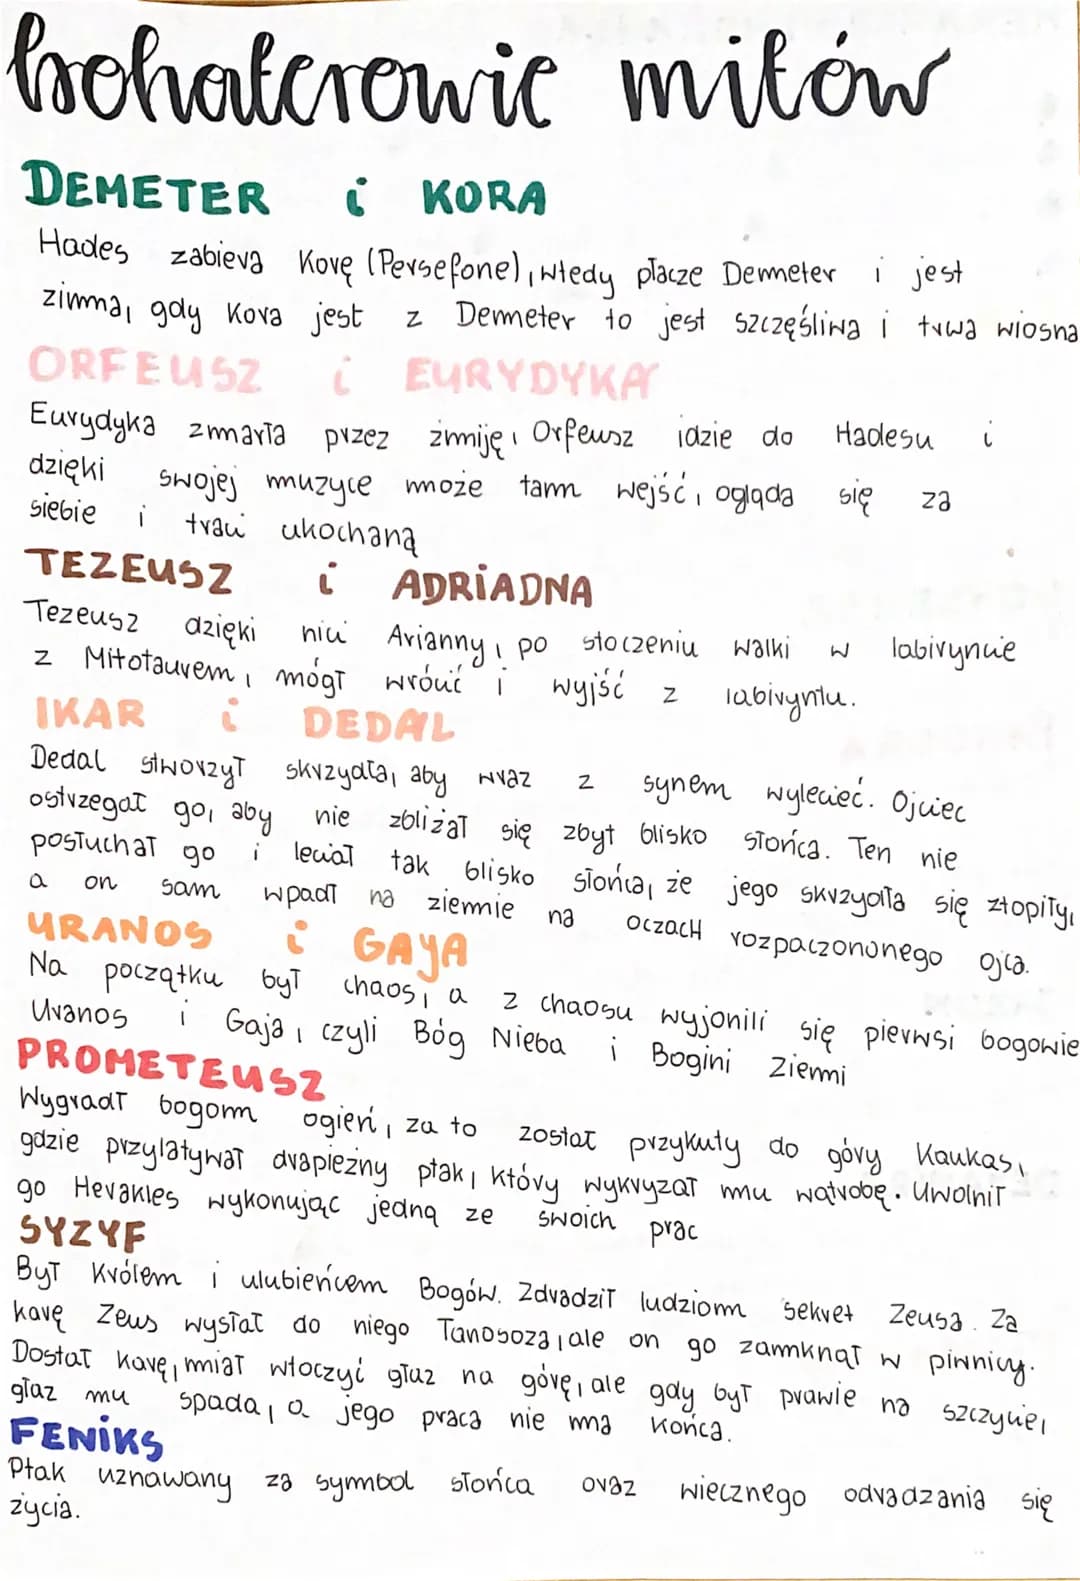 bohaterowie mitów
DEMETER i KORA
Hades zabiera Korę (Persefone), wtedy płacze Demeter i jest
zimna, gdy Kora jest z Demeter to jest szczęśliwa i trwa wiosna
ORFEUSZ i EURYDYKA
Eurydyka zmarła przez żmiję, Orfeusz idzie do Hadesu i
dzięki swojej muzyce może tam wejść, ogląda się za
siebie i traci ukochaną
TEZEUSZ i ADRIADNA
Tezeusz dzięki nici Arianny, po stoczeniu walki w labiryncie
z Mitotaurem, mógł wrócić i wyjść z labiryntu.
IKAR i DEDAL
Dedal stworzył skrzydła, aby wraz z synem wylecieć. Ojciec
ostrzegał go, aby nie zbliżał się zbyt blisko słońca. Ten nie
posłuchał go i leciał tak blisko słońca, że jego skrzydła się złopiły,
a on sam wpadł na ziemie na oczach rozpaczononego ojca.
URANOS i GAYA
Na początku był chaos, a z chaosu wyjonili się pierwsi bogowie
Uranos i Gaja, czyli Bóg Nieba i Bogini Ziemi
PROMETEUSZ
Wygradł bogom ogień, za to został przykuty do góry Kaukas,
gdzie przylatywał drapieżny ptak, który wykryzał mu wątrobę. Uwolnił
go Herakles wykonując jedną ze swoich prac
SYZYF
Był Królem i ulubieńcem Bogów. Zdradził ludziom sekret Zeusa. Za
karę Zeus wysłał do niego Tanosoza, ale on go zamknął w piwnicy.
Dostał karę, miał wtoczyć głaz na górę, ale gdy był prawie na szczycie,
głaz mu spada, a jego praca nie ma końca.
FENIKS
Ptak uznawany za symbol słońca oraz wiecznego odradzania się
życia.